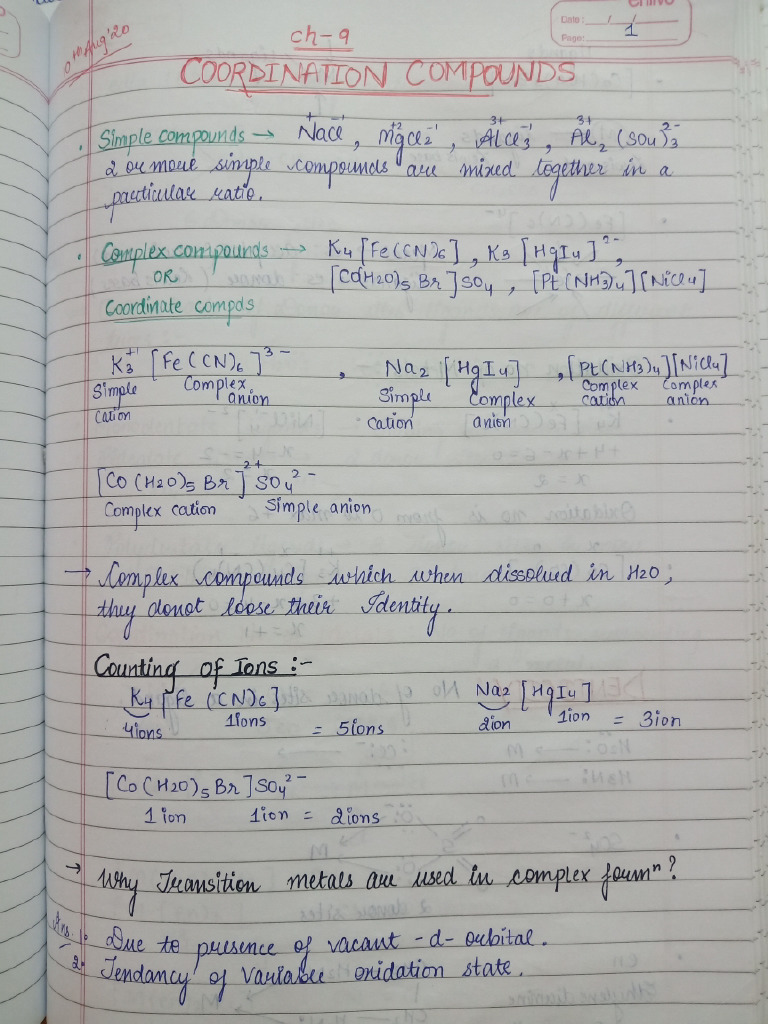 Date: / /
Page: 1
Aug'20
ch-9
COORDINATION COMPOUNDS
. Simple compounds → Na⁺Cl⁻¹, Mg⁺²Cl₂⁻¹, Al³⁺Cl₃⁻¹, Al³⁺₂(SO₄)₃²⁻
2 or more simple compounds are mixed together in a
particular ratio.
. Complex compounds → K₄[Fe(CN)₆], K₃[HgI₄]²⁻,
OR [Co(H₂O)₅Br]SO₄, [Pt(NH₃)₄][NiCl₄]
Coordinate compds
K₃⁺¹ [Fe(CN)₆]³⁻ , Na₂ [HgI₄] , [Pt(NH₃)₄][NiCl₄]
Simple Complex Simple Complex Complex Complex
cation anion cation anion cation anion
[Co(H₂O)₅Br]²⁺SO₄²⁻
Complex cation Simple anion
→ Complex compounds which when dissolved in H₂O,
they donot loose their Identity.
Counting of Ions :-
K₄[Fe(CN)₆] Na₂[HgI₄]
4ions 1ions = 5ions 2ion 1ion = 3ion
[Co(H₂O)₅Br]SO₄²⁻
1 ion 1ion = 2ions
→ Why Transition metals are used in complex formⁿ?
Ans. 1. Due to presence of vacant -d- orbital.
2. Tendancy of Variable oxidation state.